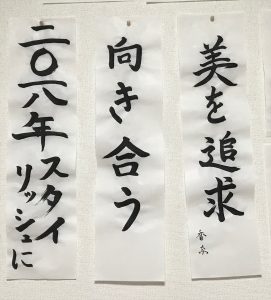 美を追求
向き合う
二〇一八年スタイ
リッシュに